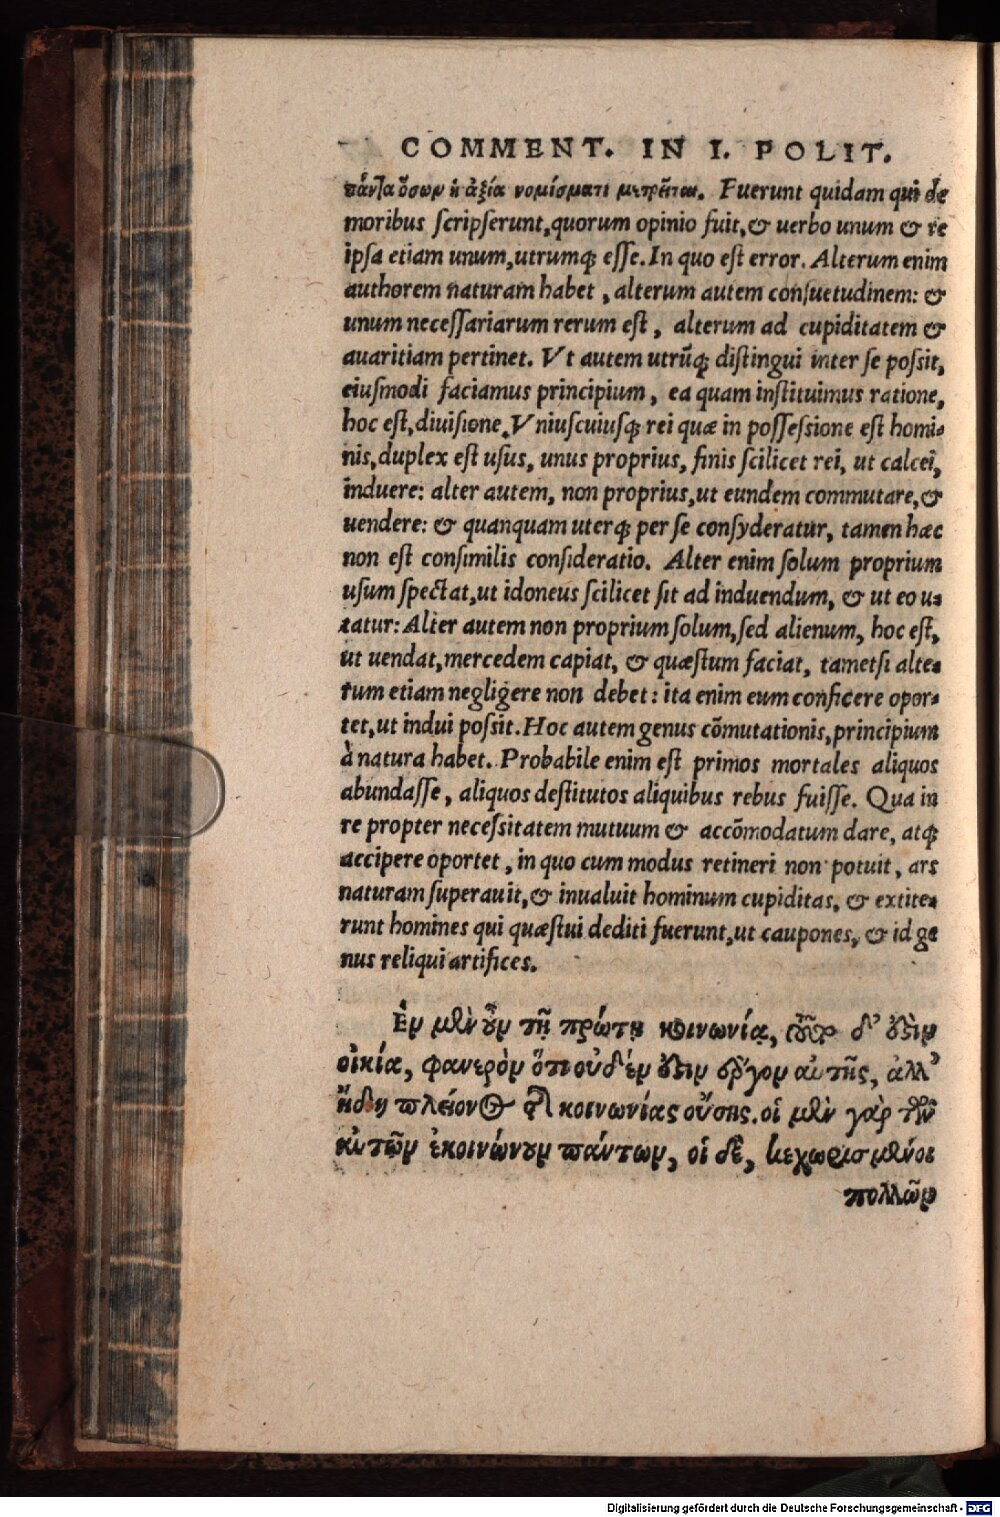 COMMENT. IN I. POLIT.
πάντα ὅσων ἡ ἀξία νομίσματι μετρεῖται. Fuerunt quidam qui de
moribus ſcripſerunt, quorum opinio fuit, & uerbo unum & re
ipſa etiam unum, utrumq; eſſe. In quo eſt error. Alterum enim
authorem naturam habet, alterum autem conſuetudinem: &
unum neceſſariarum rerum eſt, alterum ad cupiditatem &
auaritiam pertinet. Vt autem utrũq; diſtingui inter ſe poſsit,
eiuſmodi faciamus principium, ea quam inſtituimus ratione,
hoc eſt, diuiſione. Vniuſcuiuſq; rei quæ in poſſeſsione eſt homi-
nis, duplex eſt uſus, unus proprius, finis ſcilicet rei, ut calcei,
induere: alter autem, non proprius, ut eundem commutare, &
uendere: & quanquam uterq; per ſe conſyderatur, tamen hæc
non eſt conſimilis conſideratio. Alter enim ſolum proprium
uſum ſpectat, ut idoneus ſcilicet ſit ad induendum, & ut eo u-
tatur: Alter autem non proprium ſolum, ſed alienum, hoc eſt,
ut uendat, mercedem capiat, & quæſtum faciat, tametſi alte-
rum etiam negligere non debet: ita enim eum conficere opor-
tet, ut indui poſsit. Hoc autem genus cõmutationis, principium
à natura habet. Probabile enim eſt primos mortales aliquos
abundaſſe, aliquos deſtitutos aliquibus rebus fuiſſe. Qua in
re propter neceſsitatem mutuum & accõmodatum dare, atq;
accipere oportet, in quo cum modus retineri non potuit, ars
naturam ſuperauit, & inualuit hominum cupiditas, & extite-
runt homines qui quæſtui dediti fuerunt, ut caupones, & id ge
nus reliqui artifices.
Ἐν μὲν οὖν τῇ πρώτῃ κοινωνίᾳ, τοῦτο δ' ἐστὶν
οἰκία, φανερὸν ὅτι οὐδέν ἐστιν ἔργον αὐτῆς, ἀλλ'
ἤδη πλείονος τῆς κοινωνίας οὔσης. οἱ μὲν γὰρ τῶν
αὐτῶν ἐκοινώνουν πάντων, οἱ δὲ, κεχωρισμένοι
πολλῶν
Digitalisierung gefördert durch die Deutsche Forschungsgemeinschaft - DFG